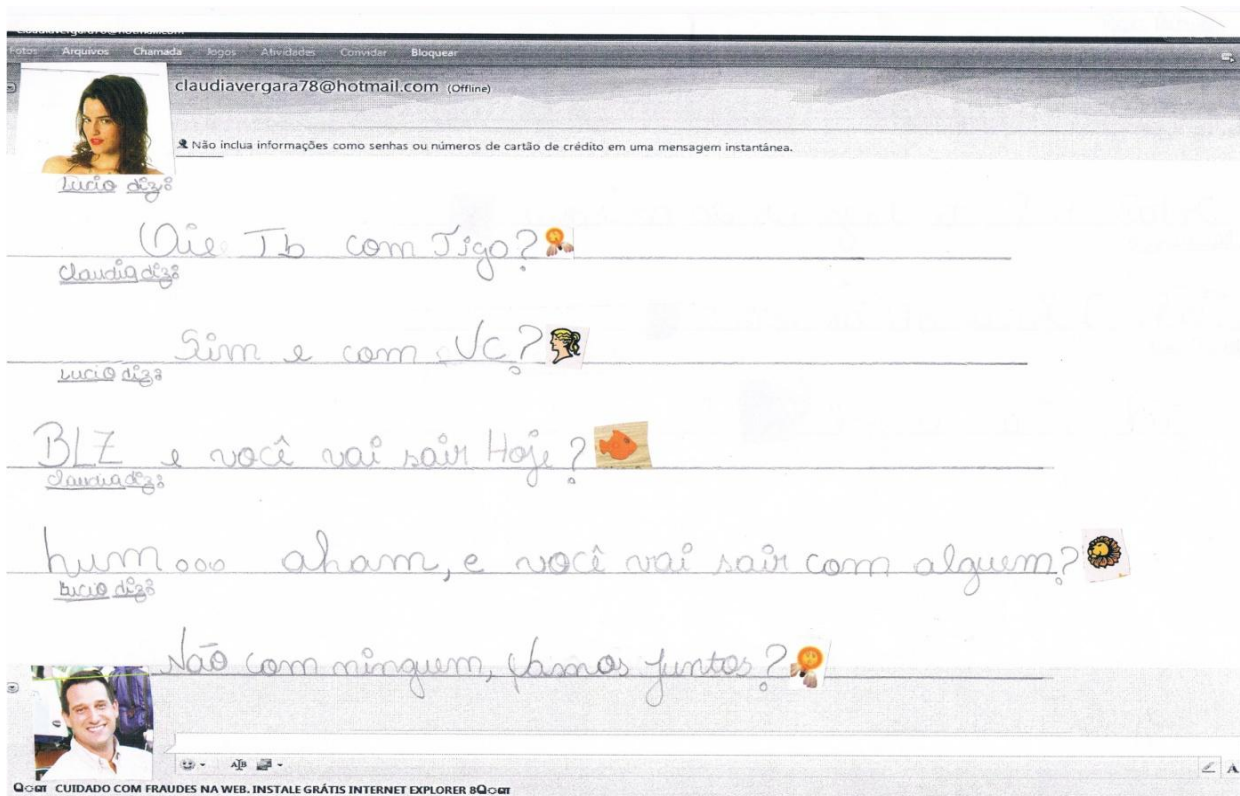 Fotos Arquivos Chamada Jogos Atividades Convidar Bloquear
claudiavergara78@hotmail.com (Offline)
Não inclua informações como senhas ou números de cartão de crédito em uma mensagem instantânea.
Lucio diz:
Oie Tb com Tigo?
Claudia diz:
Sim e com Vc?
Lucio diz:
BLZ e você vai sair Hoje?
Claudia diz:
hum... aham, e você vai sair com alguem?
Lucio diz:
Não com ninguem, Vamos juntos?
CUIDADO COM FRAUDES NA WEB. INSTALE GRÁTIS INTERNET EXPLORER 8